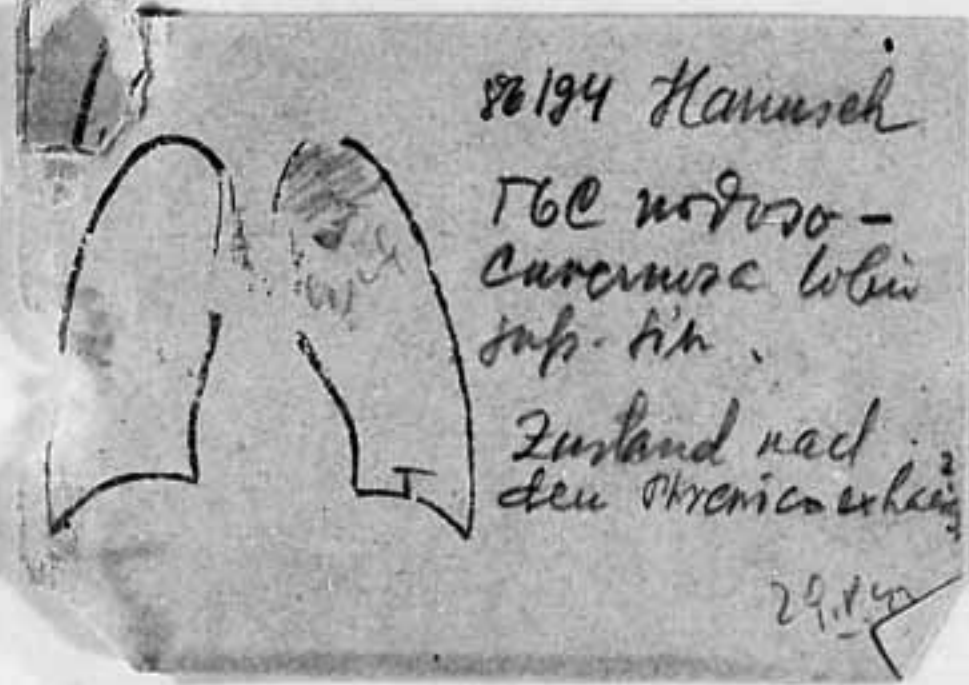 86194 Hanusch
TbC nodoso-
cavernosa lobii
sup. sin.
Zustand nach
den Phrenicoexhair
29.V.